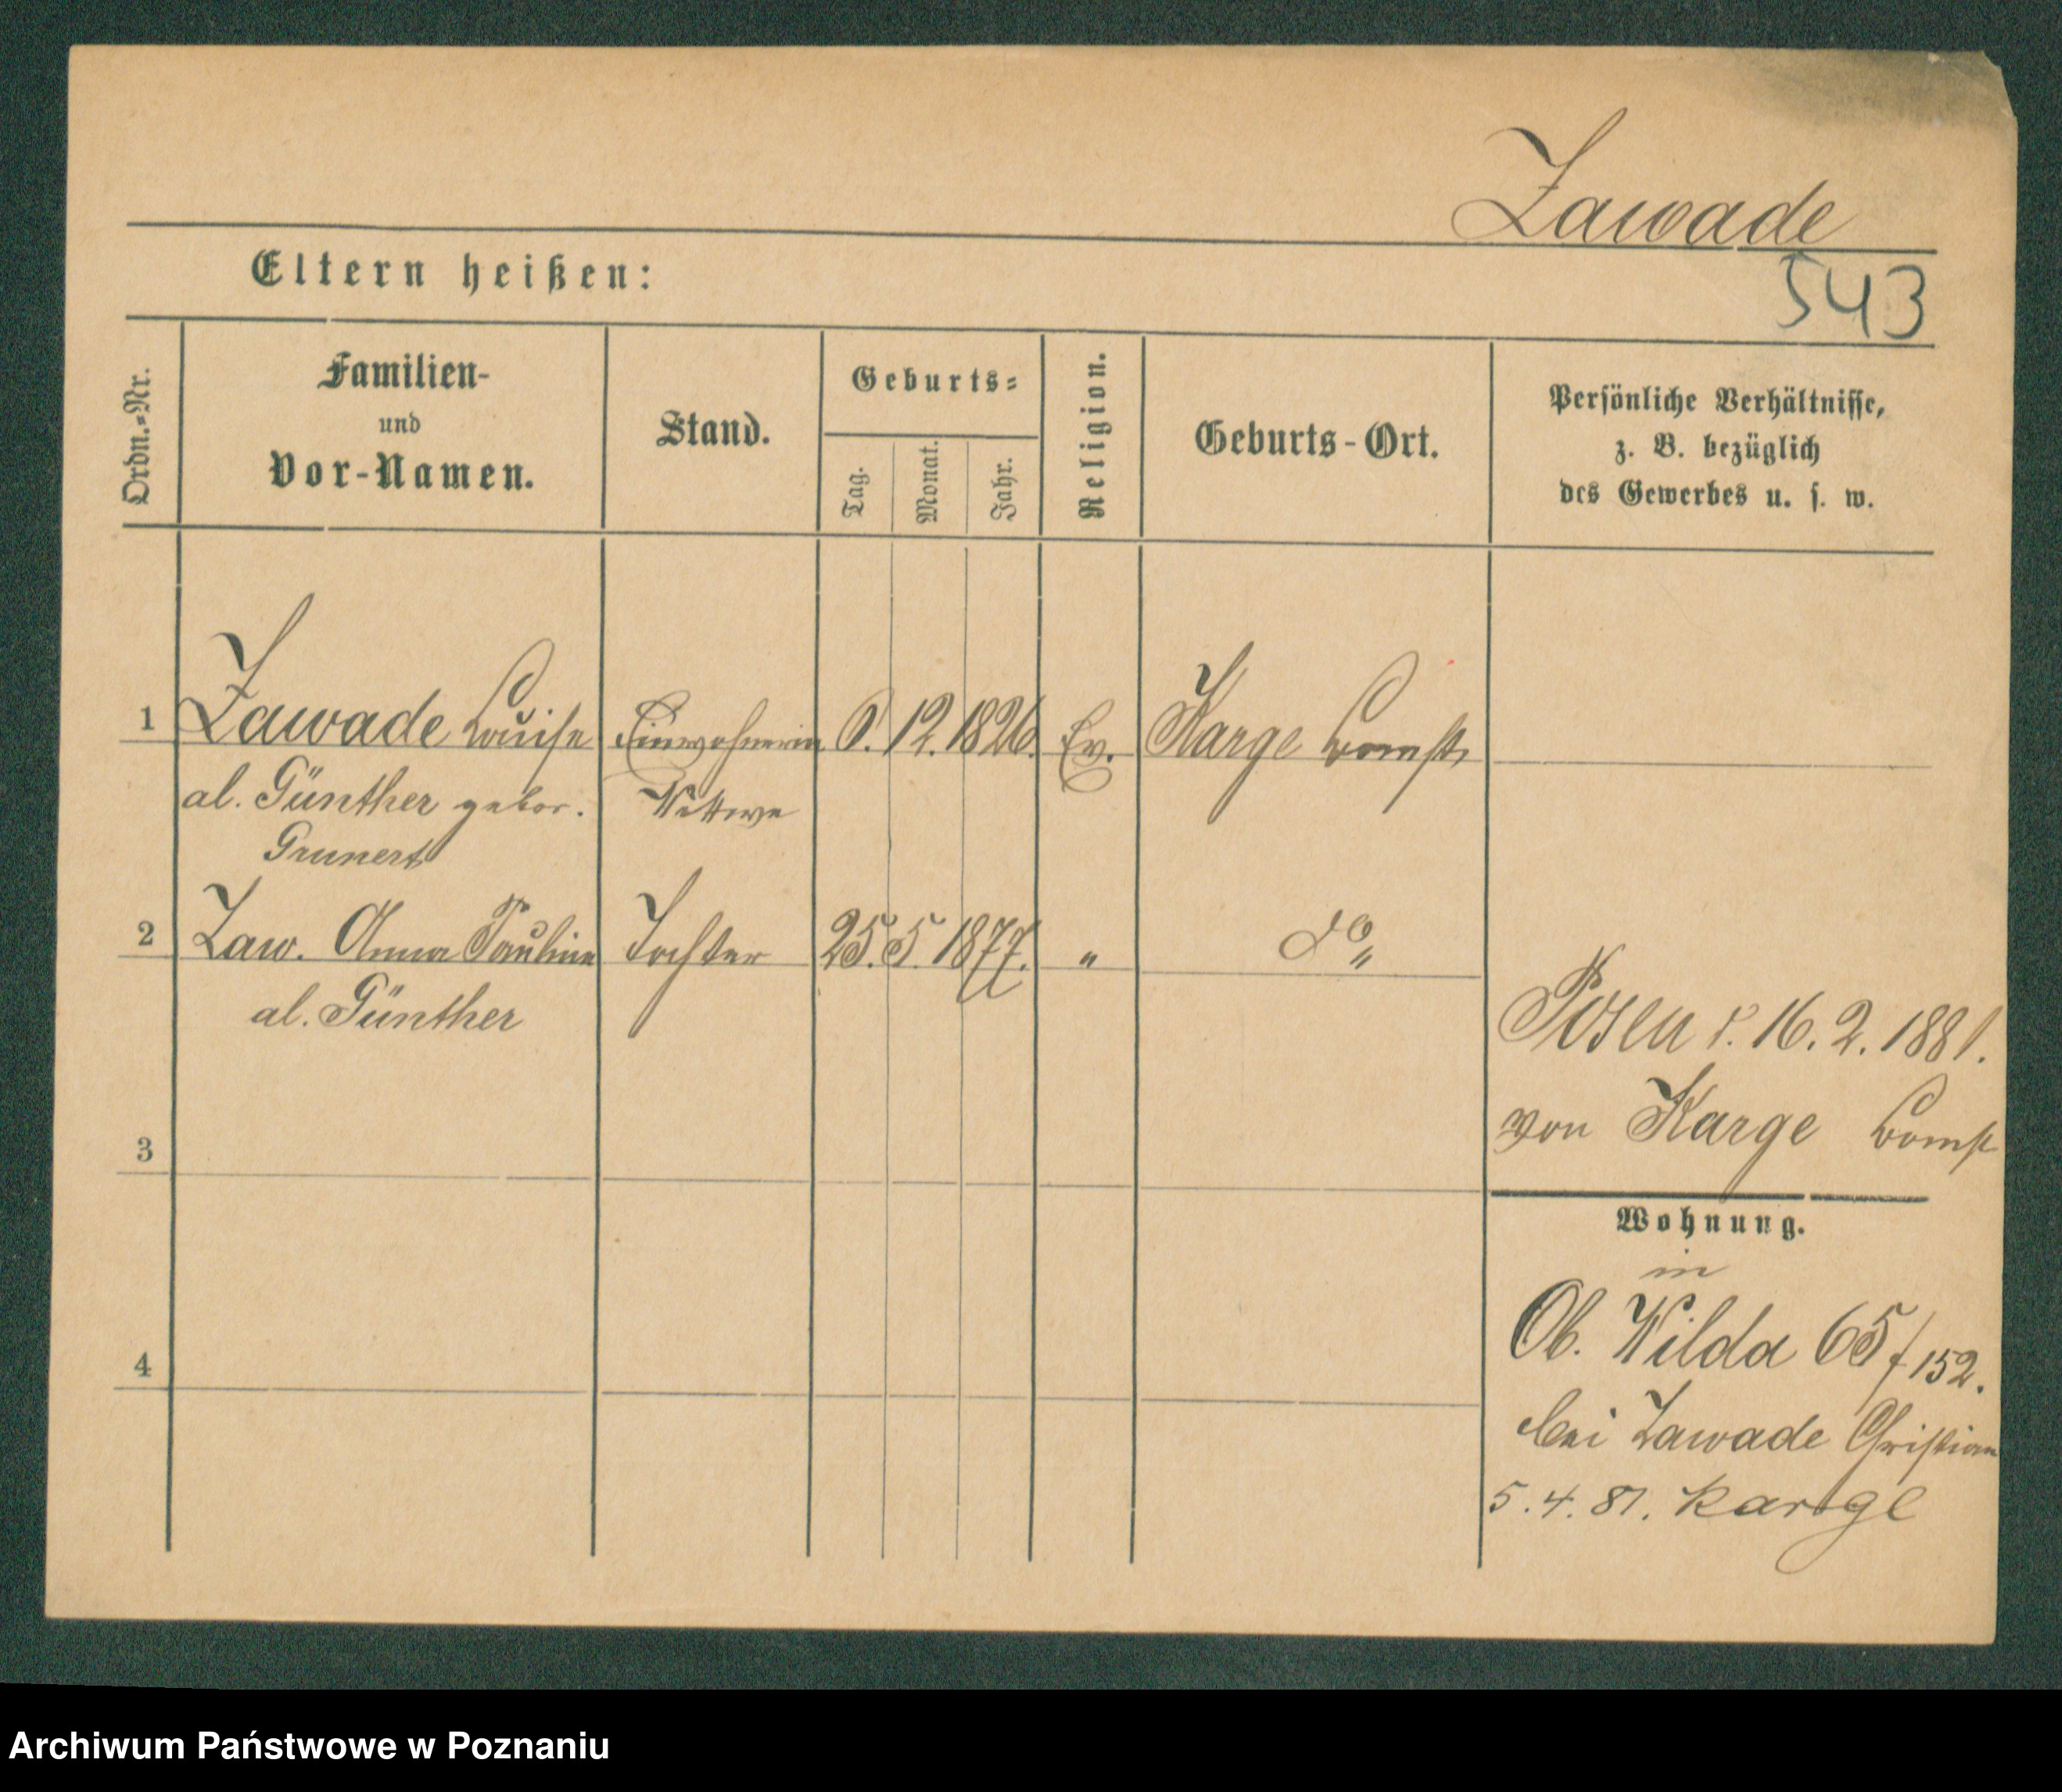 Zawade
543
Eltern heißen:
Ordn.-Nr.
Familien-
und
Vor-Namen.
Stand.
Geburts-
Tag.
Monat.
Jahr.
Religion.
Geburts-Ort.
Persönliche Verhältnisse,
z. B. bezüglich
des Gewerbes u. s. w.
1 Zawade Louise Einwohnerin 12. 1826. Ev. Karge Bomst
al. Günther gebor. Wittwe
Grunert
2 Zaw. Anna Pauline Tochter 25. 5. 1877. " do "
al. Günther
Posen 16. 2. 1881.
von Karge Bomst
3
Wohnung.
in
Ob. Wilda 65/152.
4
bei Zawade Christian
5. 4. 81. Karge
Archiwum Państwowe w Poznaniu